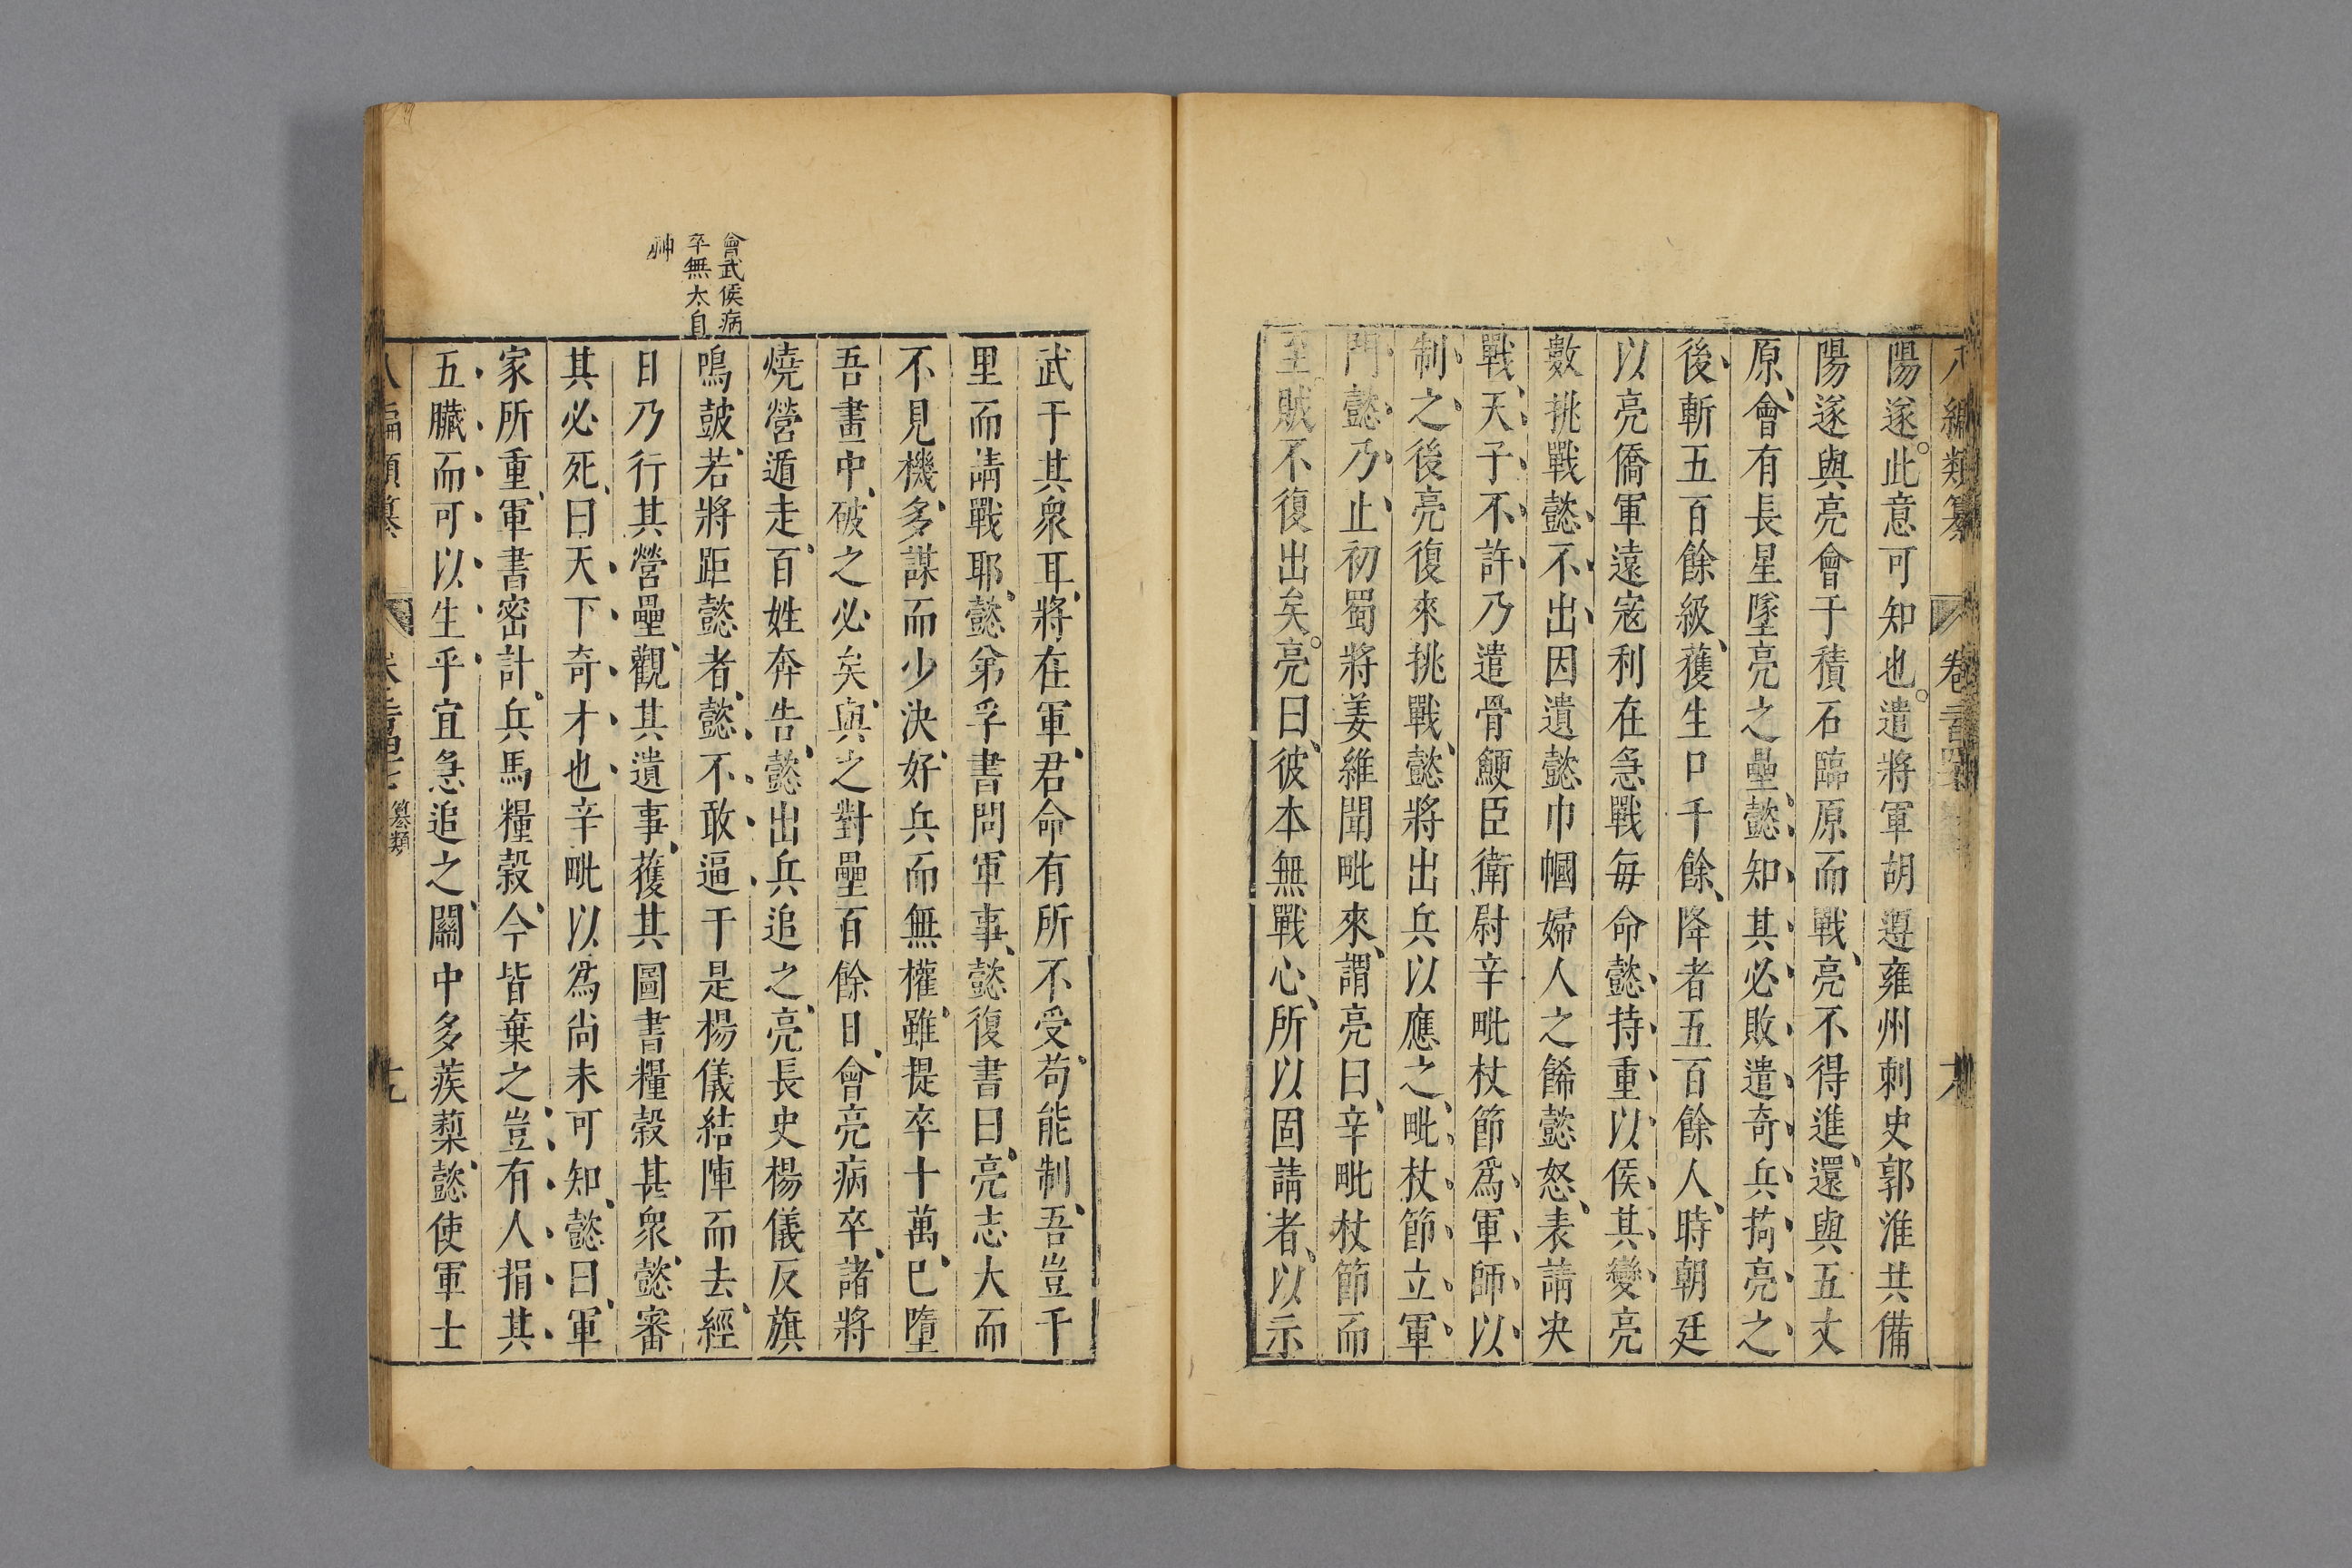 八編類纂 卷
陽遂。此意可知也。遣將軍胡遵雍州刺史郭淮共備
陽遂與亮會于積石臨原而戰、亮不得進、還與五丈
原、會有長星墜亮之壘、懿知其必敗遣奇兵掎亮之
後、斬五百餘級、獲生口千餘、降者五百餘人、時朝廷
以亮僑軍遠寇利在急戰每命懿持重以侯其變亮
數挑戰懿不出因遺懿巾幗婦人之餙懿怒、表請决
戰、天子不許乃遣骨鯁臣衛尉辛毗杖節為軍師以
制之後亮復來挑戰、懿將出兵以應之、毗杖節立軍
門懿乃止初蜀將姜維聞毗來、謂亮曰、辛毗杖節而
至。賊不復出矣。亮曰、彼本無戰心、所以固請者、以示
武于其衆耳、將在軍、君命有所不受、苟能制、吾豈千
里而請戰耶、懿弟孚書問軍事、懿復書曰、亮志大而
不見機、多謀而少決、好兵而無權、雖提卒十萬、已墮
吾畫中、破之必矣、與之對壘百餘日、會亮病卒、諸將
燒營遁走、百姓奔告、懿出兵追之、亮長史楊儀反旗
鳴鼓、若將距懿者、懿不敢逼于是楊儀結陣而去、經
日乃行其營壘、觀其遺事、獲其圖書糧穀甚衆、懿審
其必死、曰、天下奇才也辛毗以為尚未可知、懿曰、軍
家所重、軍書密計、兵馬糧穀、今皆棄之豈有人捐其
五臟而可以生乎宜急追之、關中多蒺蔾、懿使軍士
會武侯病
卒無太自
神
八編類纂 纂類 十九